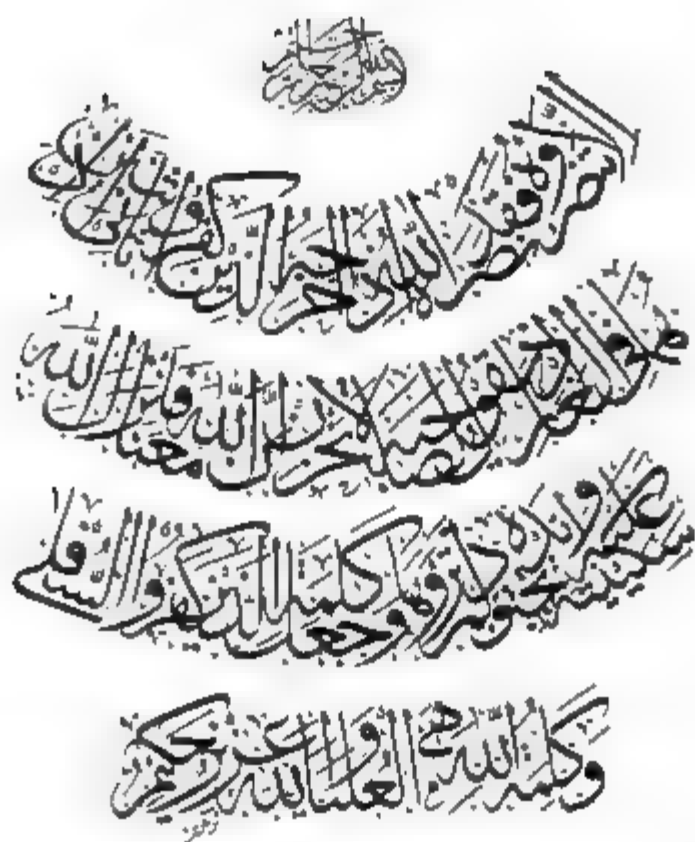 إلا تنصروه فقد نصره الله إذ أخرجه الذين كفروا ثاني اثنين إذ
هما في الغار إذ يقول لصاحبه لا تحزن إن الله معنا فأنزل الله
سكينته عليه وأيده بجنود لم تروها وجعل كلمة الذين كفروا السفلى
وكلمة الله هي العليا والله عزيز حكيم